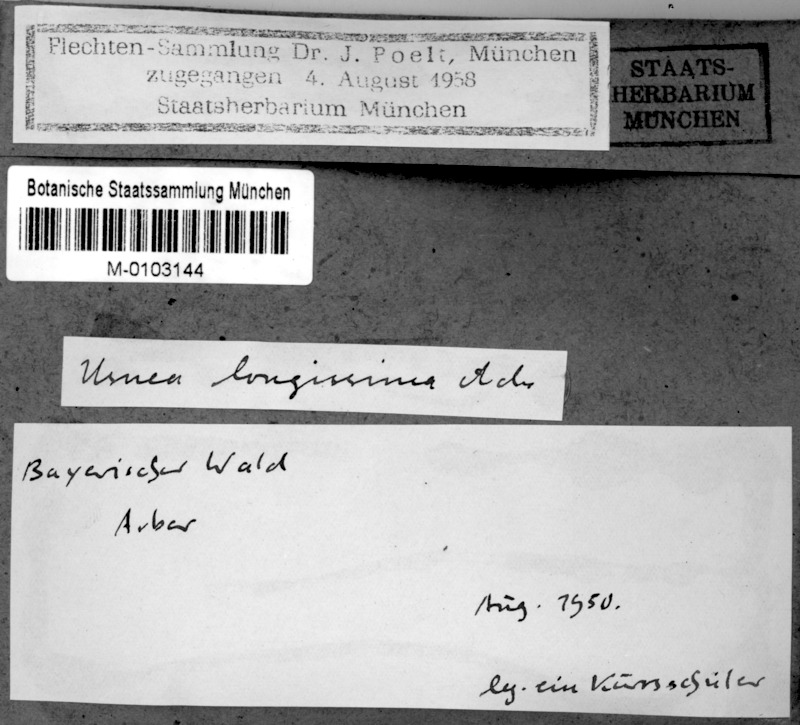 Flechten-Sammlung Dr. J. Poelt, München
zugegangen 4. August 1958
Staatsherbarium München
STAATS-
HERBARIUM
MÜNCHEN
Botanische Staatssammlung München
M-0103144
Usnea longissima Ach.
Bayerischer Wald
Arber
Aug. 1950.
lg. ein Kursschüler